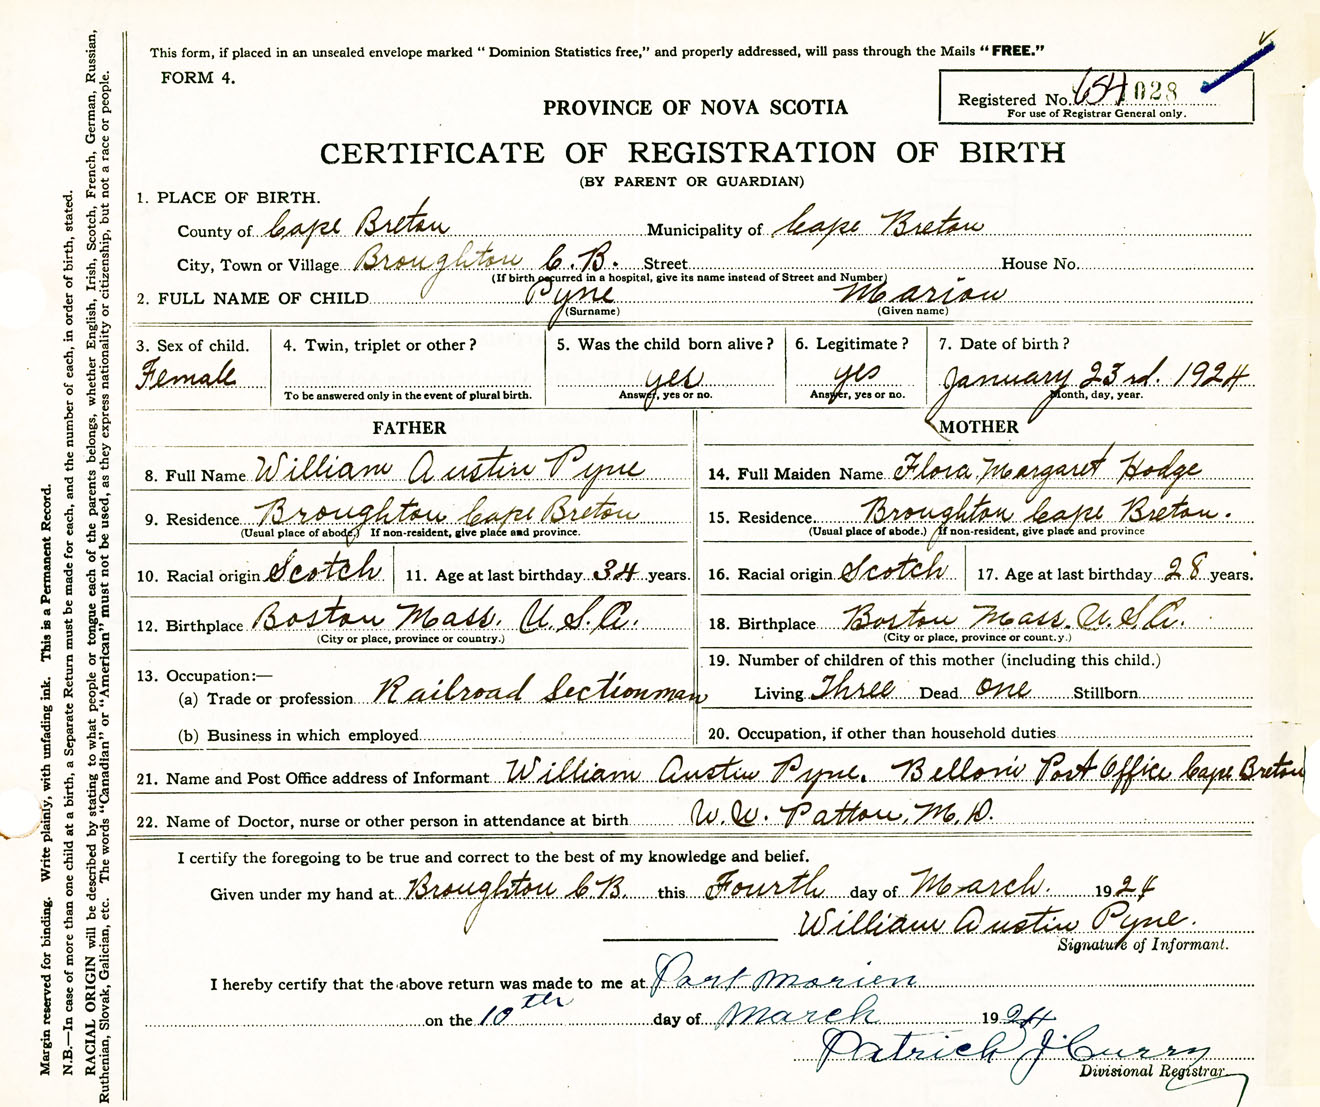 This form, if placed in an unsealed envelope marked "Dominion Statistics free," and properly addressed, will pass through the Mails "FREE."
FORM 4.
Registered No. 654 028
For use of Registrar General only.
PROVINCE OF NOVA SCOTIA
CERTIFICATE OF REGISTRATION OF BIRTH
(BY PARENT OR GUARDIAN)
1. PLACE OF BIRTH.
County of Cape Breton Municipality of Cape Breton
City, Town or Village Broughton C.B. Street House No.
(If birth occurred in a hospital, give its name instead of Street and Number)
2. FULL NAME OF CHILD Pyne Marion
(Surname) (Given name)
3. Sex of child. 4. Twin, triplet or other? 5. Was the child born alive? 6. Legitimate? 7. Date of birth?
Female yes yes January 23rd. 1924
To be answered only in the event of plural birth. Answer, yes or no. Answer, yes or no. Month, day, year.
FATHER MOTHER
8. Full Name William Austin Pyne 14. Full Maiden Name Flora Margaret Hodge
9. Residence Broughton Cape Breton 15. Residence Broughton Cape Breton.
(Usual place of abode.) If non-resident, give place and province. (Usual place of abode.) If non-resident, give place and province
10. Racial origin Scotch 11. Age at last birthday 34 years. 16. Racial origin Scotch 17. Age at last birthday 28 years.
12. Birthplace Boston Mass. U.S.A. 18. Birthplace Boston Mass. U.S.A.
(City or place, province or country.) (City or place, province or count.y.)
19. Number of children of this mother (including this child.)
13. Occupation:—
(a) Trade or profession Railroad Sectionman Living Three Dead one Stillborn
(b) Business in which employed 20. Occupation, if other than household duties
21. Name and Post Office address of Informant William Austin Pyne. Belloni Post Office Cape Breton
22. Name of Doctor, nurse or other person in attendance at birth W. W. Patton, M.D.
I certify the foregoing to be true and correct to the best of my knowledge and belief.
Given under my hand at Broughton C.B. this Fourth day of March. 1924
William Austin Pyne.
Signature of Informant.
I hereby certify that the above return was made to me at Port Morien
on the 10th day of March 1924
Patrick J. Curry
Divisional Registrar.
Margin reserved for binding. Write plainly, with unfading ink. This is a Permanent Record.
N.B.—In case of more than one child at a birth, a Separate Return must be made for each, and the number of each, in order of birth, stated.
RACIAL ORIGIN will be described by stating to what people or tongue each of the parents belongs, whether English, Irish, Scotch, French, German, Russian,
Ruthenian, Slovak, Galician, etc. The words "Canadian" or "American" must not be used, as they express nationality or citizenship, but not a race or people.